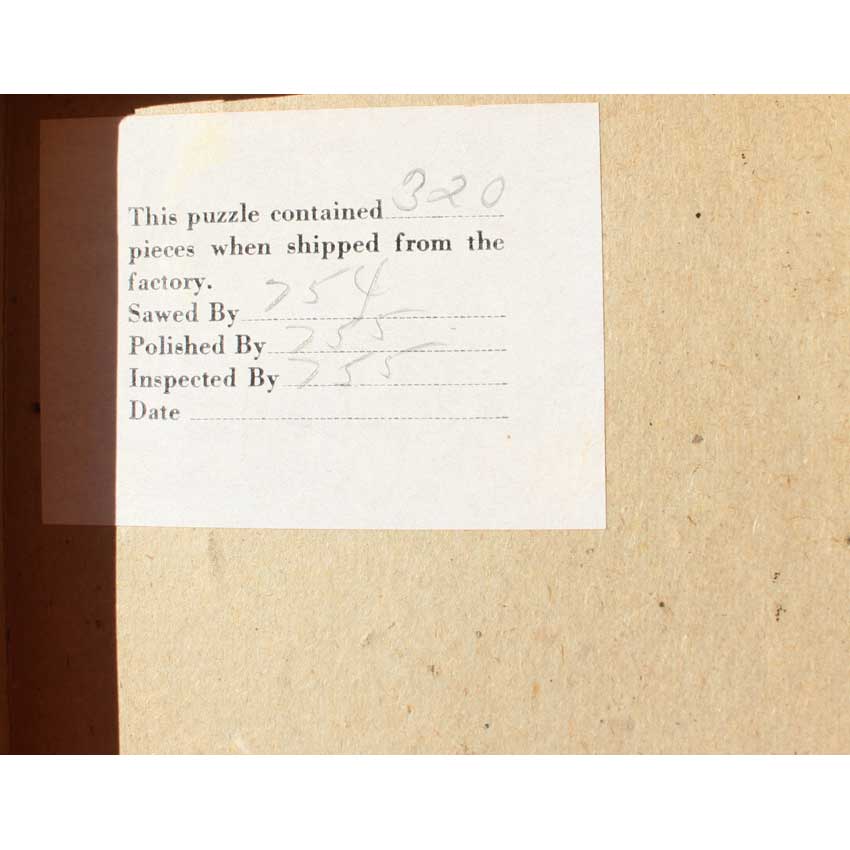 This puzzle contained 320
pieces when shipped from the
factory.
Sawed By 754
Polished By 755
Inspected By 755
Date